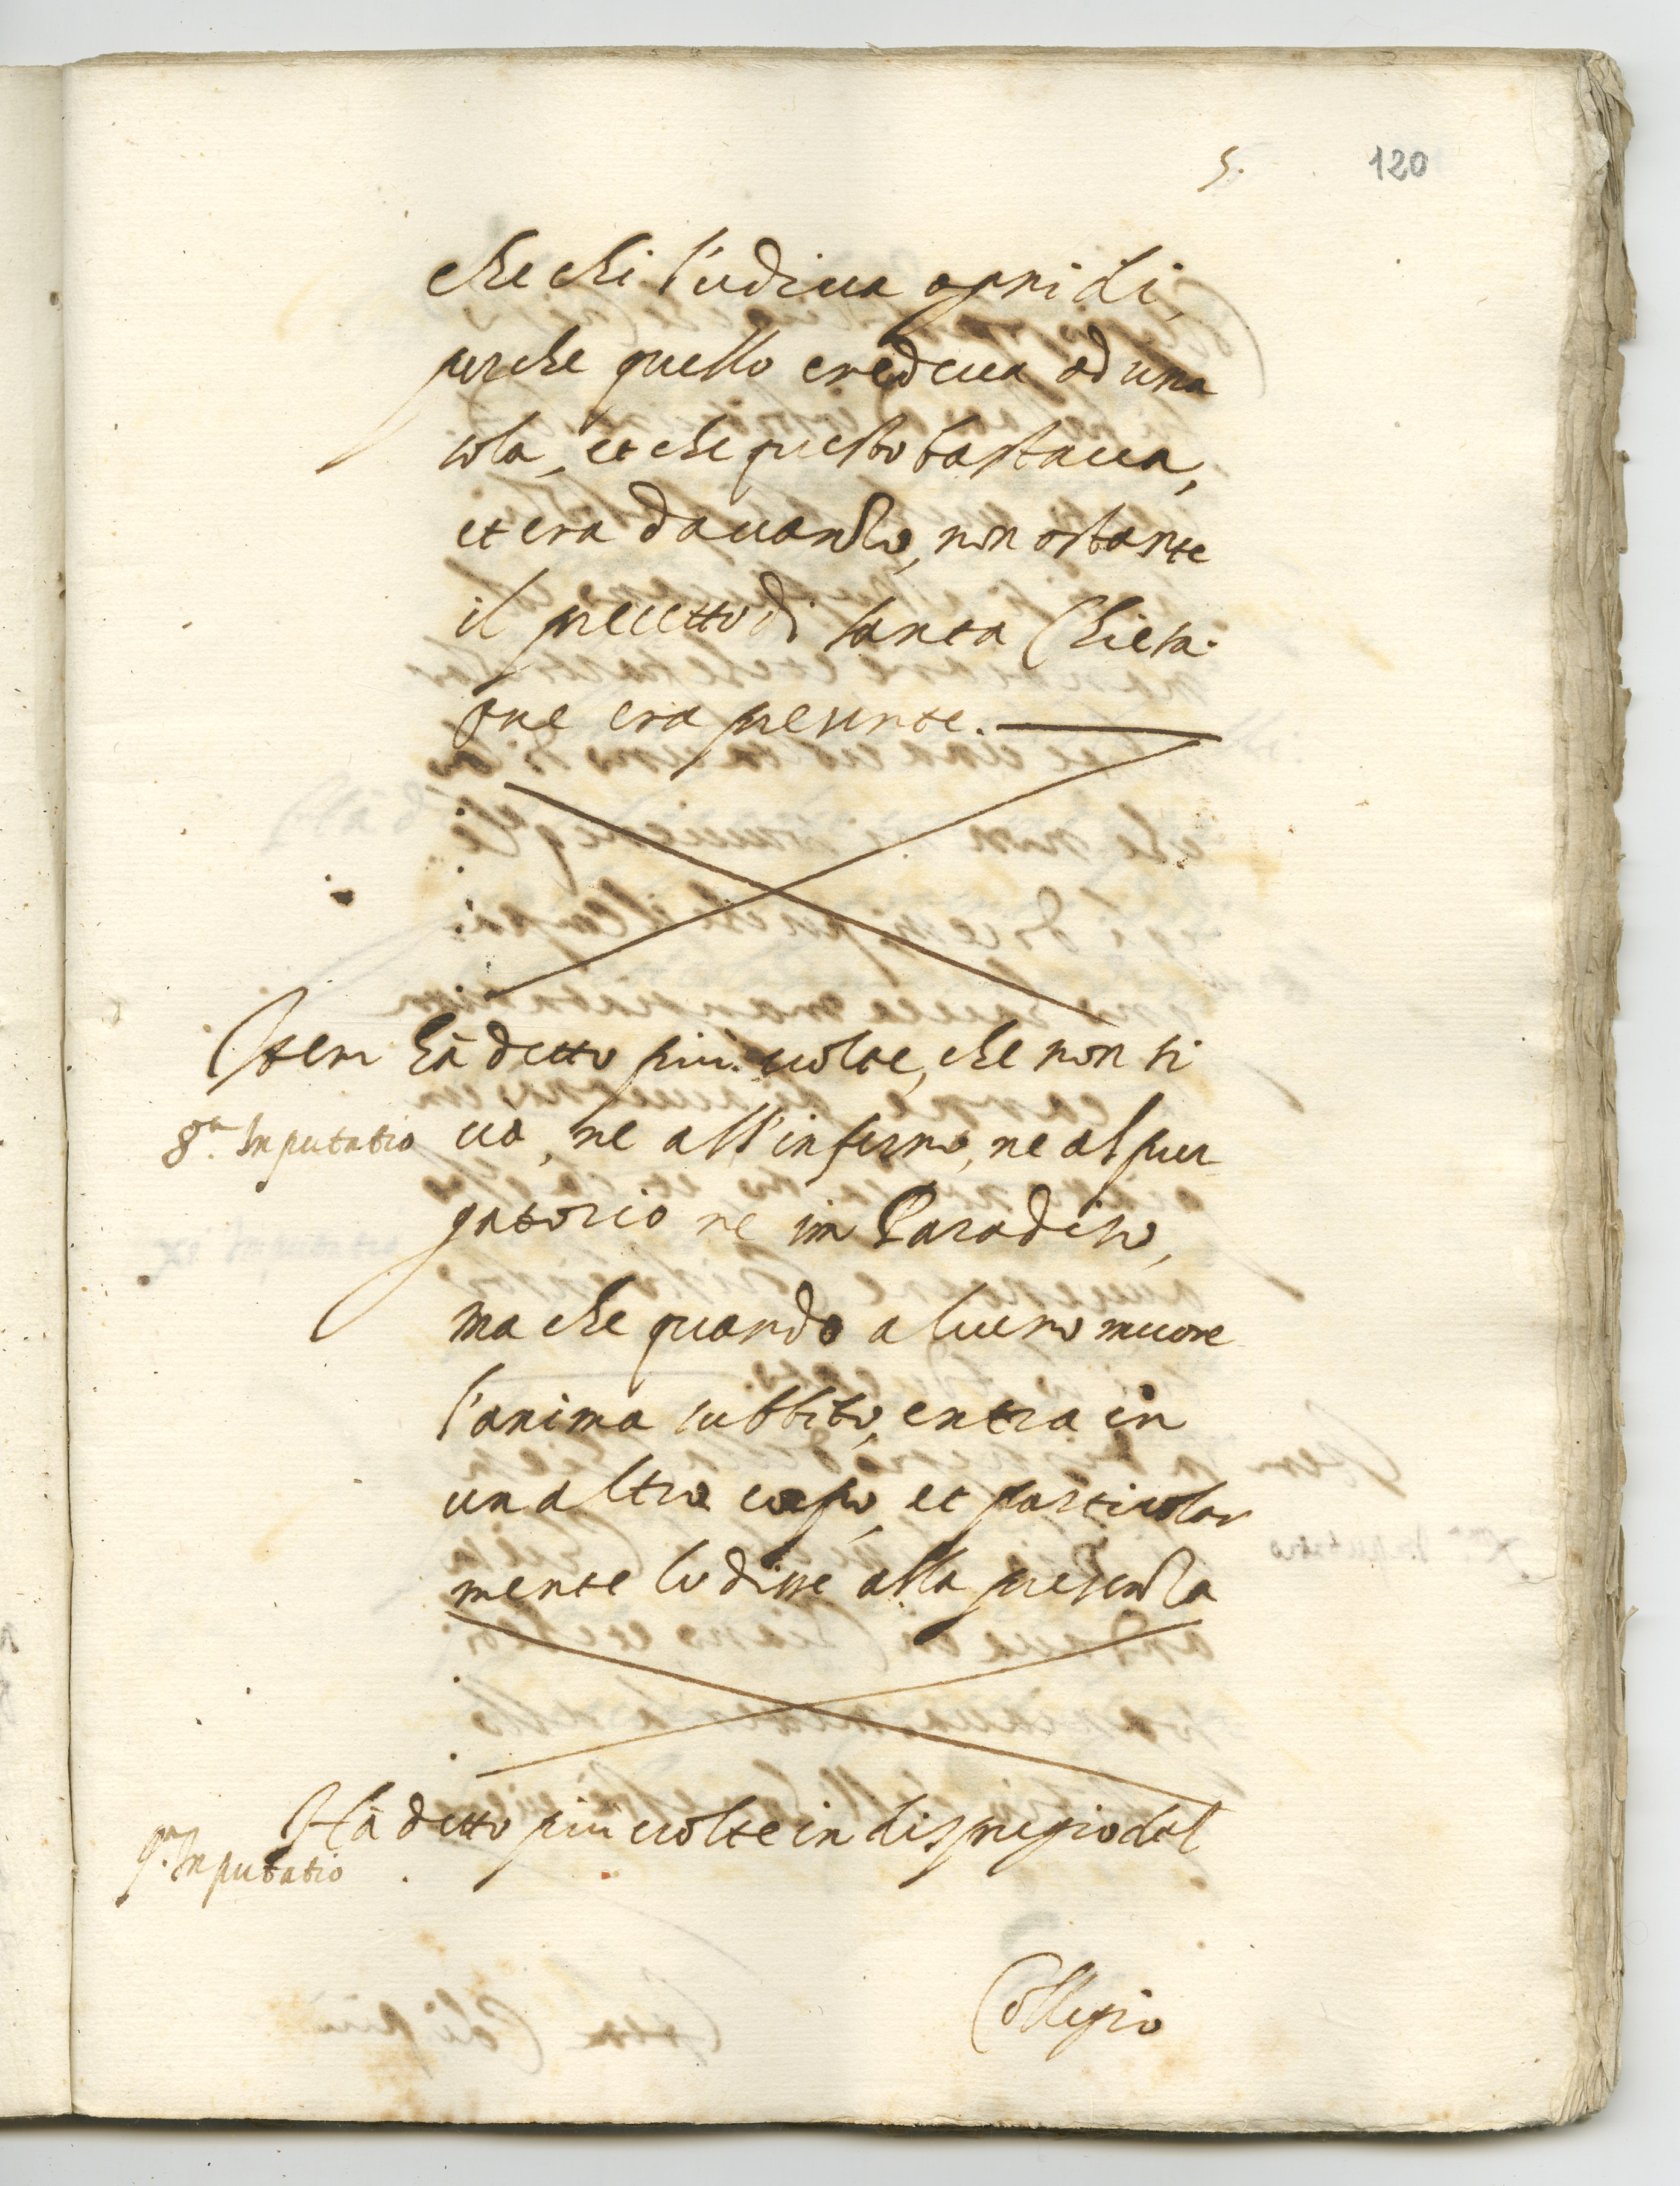 5. 120
che chi l'udiua ogni di,
perche quello credeua ad una
sola, et che questo bastaua,
et era d'auanzo, non ostante
il precetto di santa Chiesa.
One era presente.
Item hà detto più uolte, che non si
8.ª Imputatio uà, ne all'inferno, ne al pur
gatorio ne in Paradiso,
ma che quando alcuno muore
l'anima subbito, entra in
un altro corpo, et particolar
mente lo disse alla presenza
Hà detto più uolte in dispregio del
9.ª Imputatio
Collegio